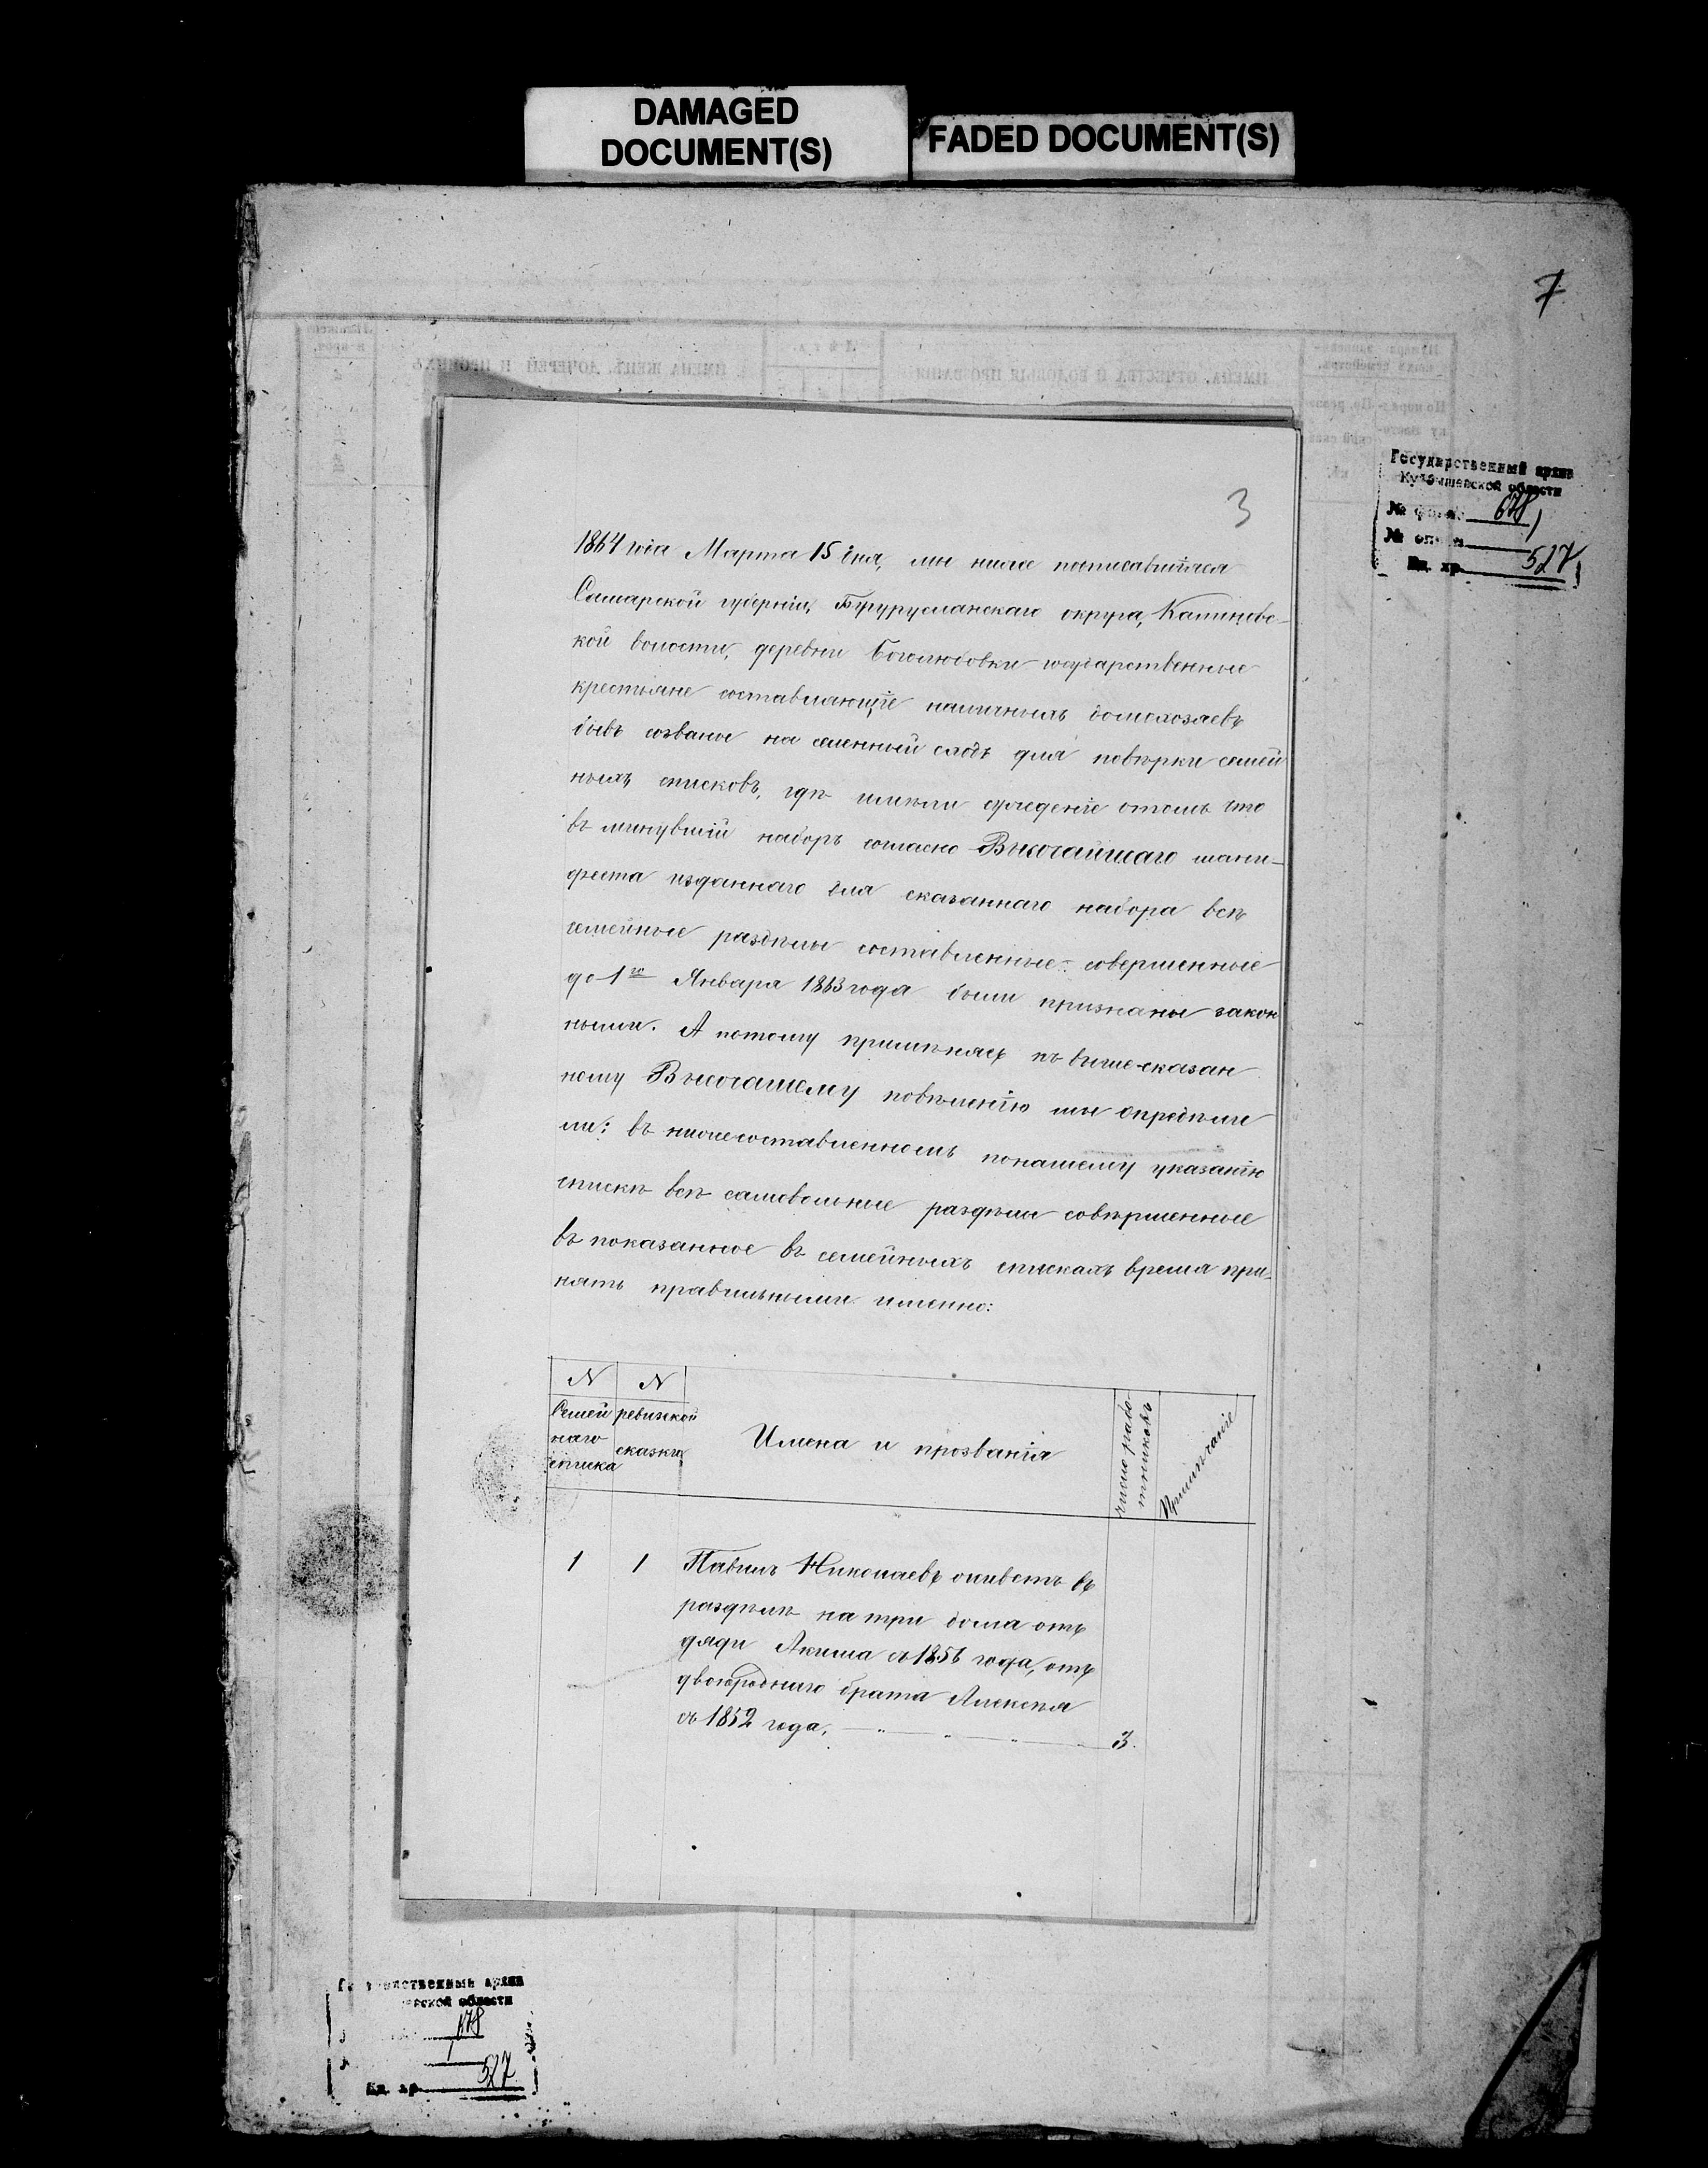 DAMAGED
DOCUMENT(S)
FADED DOCUMENT(S)
7
ИМЕНА ЖЕНЪ, ДОЧЕРЕЙ И ПРОЧИХЪ
ИМЕНА, ОТЧЕСТВА И РОДОВЫЯ ПРОЗВАНІЯ
Государственный архив
Куйбышевской области
№ фонда 678
№ описи 1
Ед. хр. 527
3
1864 года Марта 15 дня, мы ниже подписавшіяся
Самарской губерніи, Бугурусланскаго округа, Калиновс-
кой волости, деревни Боголюбовки государственные
крестьяне составляющіе наличныхъ домохозяевъ
бывъ созваны на селенный сходъ для повѣрки семей
ныхъ списковъ, гдѣ имѣли сужденіе отомъ что
въ минувшій наборъ согласно Высочайшаго мани-
феста изданнаго для сказаннаго набора всѣ
семейные раздѣлы составленные совершенные
до 1го Января 1863 года были признаны закон
ными. А потому примѣняясь къ выше-сказан
ному Высочашему повѣленію мы опредѣли
ли: въ нижесоставленномъ понашему указанію
спискѣ всѣ самовольные раздѣлы совѣршенные
въ показанное въ семейныхъ спискахъ время при-
нять правильными именно:
N N
Семей наго списка
ревизкой сказки
Имена и прозванія
число рабо-
тниковъ
Примѣчаніе
1 1 Павилъ Николаевъ живетъ въ
раздѣлѣ на три дома отъ
дяди Акима съ 1856 года, отъ
двоюроднаго брата Алексѣя
съ 1852 года. 3.
Государственный архив
ской области
678
1
Ед. хр. 527